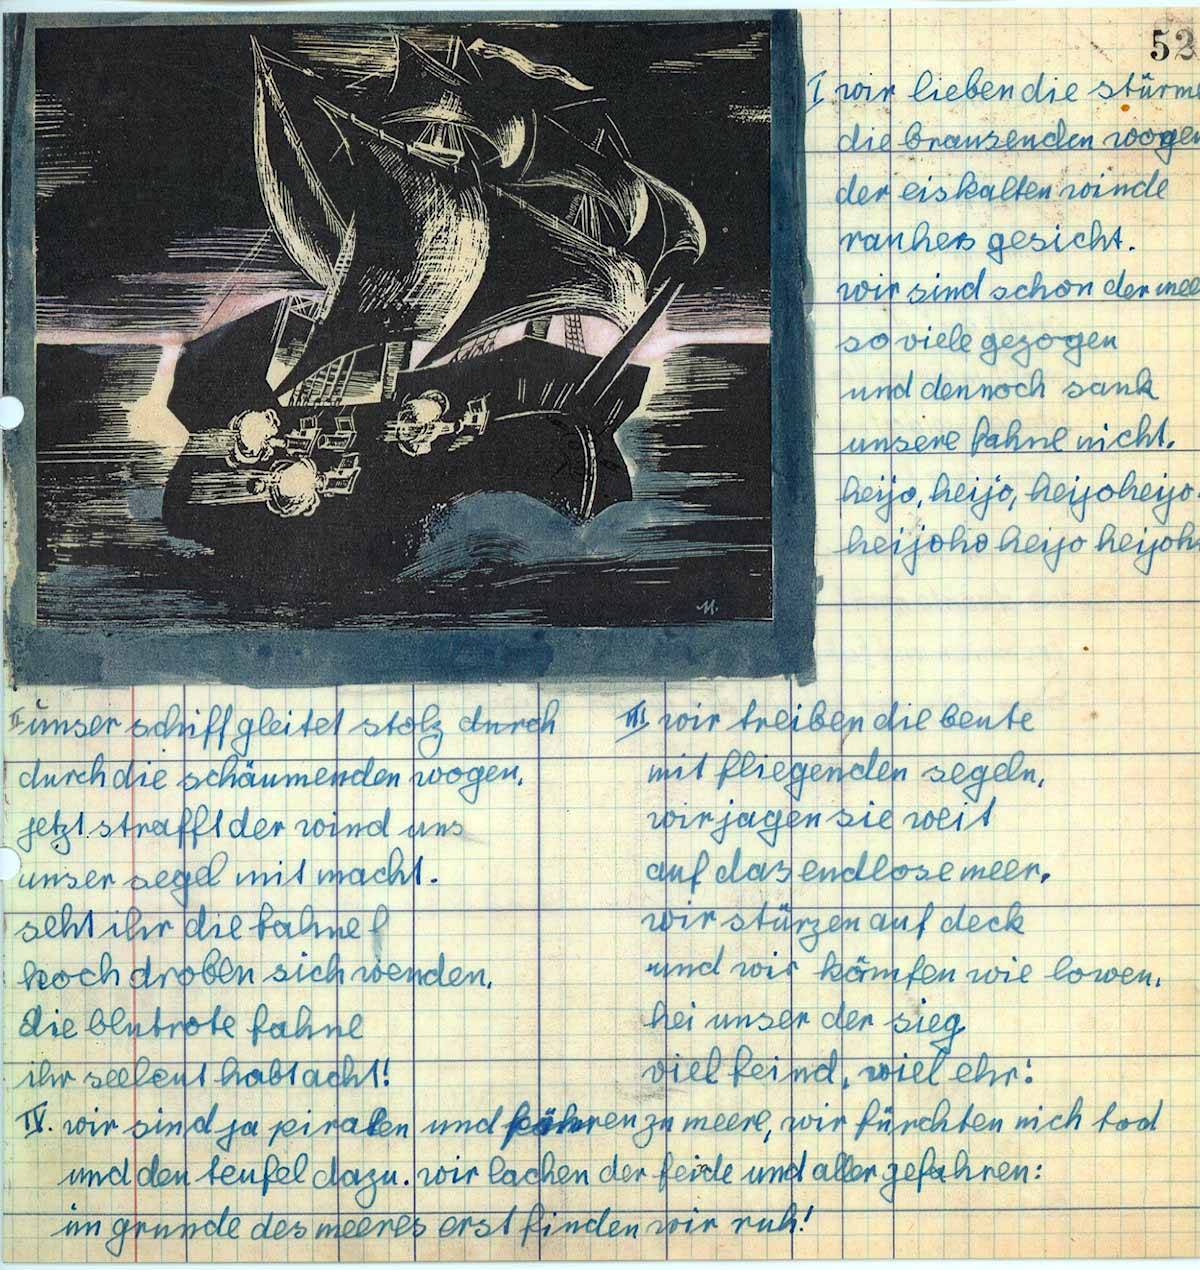 52
I wir lieben die stürme
die brausenden wogen
der eiskalten winde
rauhes gesicht.
wir sind schon der mee
so viele gezogen
und dennoch sank
unsere fahne nicht.
heijo, heijo, heijoheijo
heijoho heijo heijoh
M.
II unser schiff gleitet stolz durch
durch die schäumenden wogen.
jetzt strafft der wind uns
unser segel mit macht.
seht ihr die fahne
hoch droben sich wenden,
die blutrote fahne
ihr seeleut habt acht!
III wir treiben die beute
mit fliegenden segeln,
wir jagen sie weit
auf das endlose meer.
wir stürzen auf deck
und wir kämfen wie lowen,
hei unser der sieg
viel feind, viel ehr!
IV. wir sind ja piraten und fahren zu meere, wir fürchten nich tod
und den teufel dazu. wir lachen der feide und aller gefahren:
im grunde des meeres erst finden wir ruh!